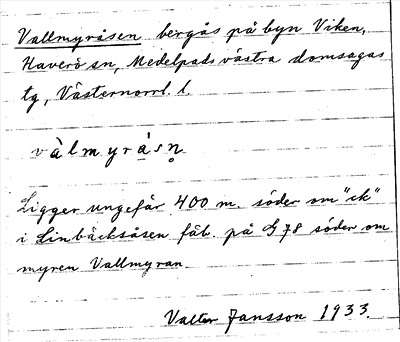 Vallmyråsen bergås på byn Viken,
Haverö sn, Medelpads västra domsagas
tg, Västernorrl. l.
vàlmyråsn̥
Ligger ungefär 400 m. söder om "ck"
i Linbäcksåsen fäb. på G 78 söder om
myren Vallmyran.
Valter Jansson 1933.